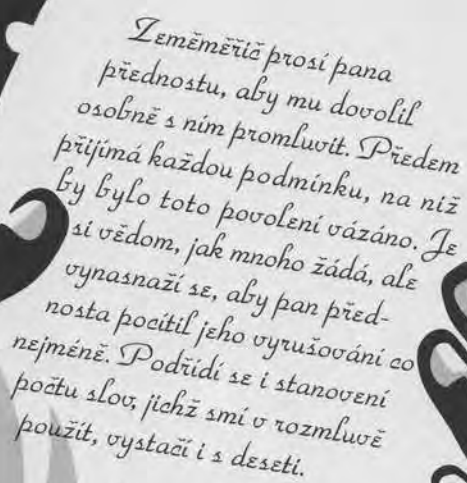 Zeměměřič prosí pana
přednostu, aby mu dovolil
osobně s ním promluvit. Předem
přijímá každou podmínku, na niž
by bylo toto povolení vázáno. Je
si vědom, jak mnoho žádá, ale
vynasnaží se, aby pan před-
nosta pocítil jeho vyrušování co
nejméně. Podřídí se i stanovení
počtu slov, jichž smí v rozmluvě
použít, vystačí i s deseti.